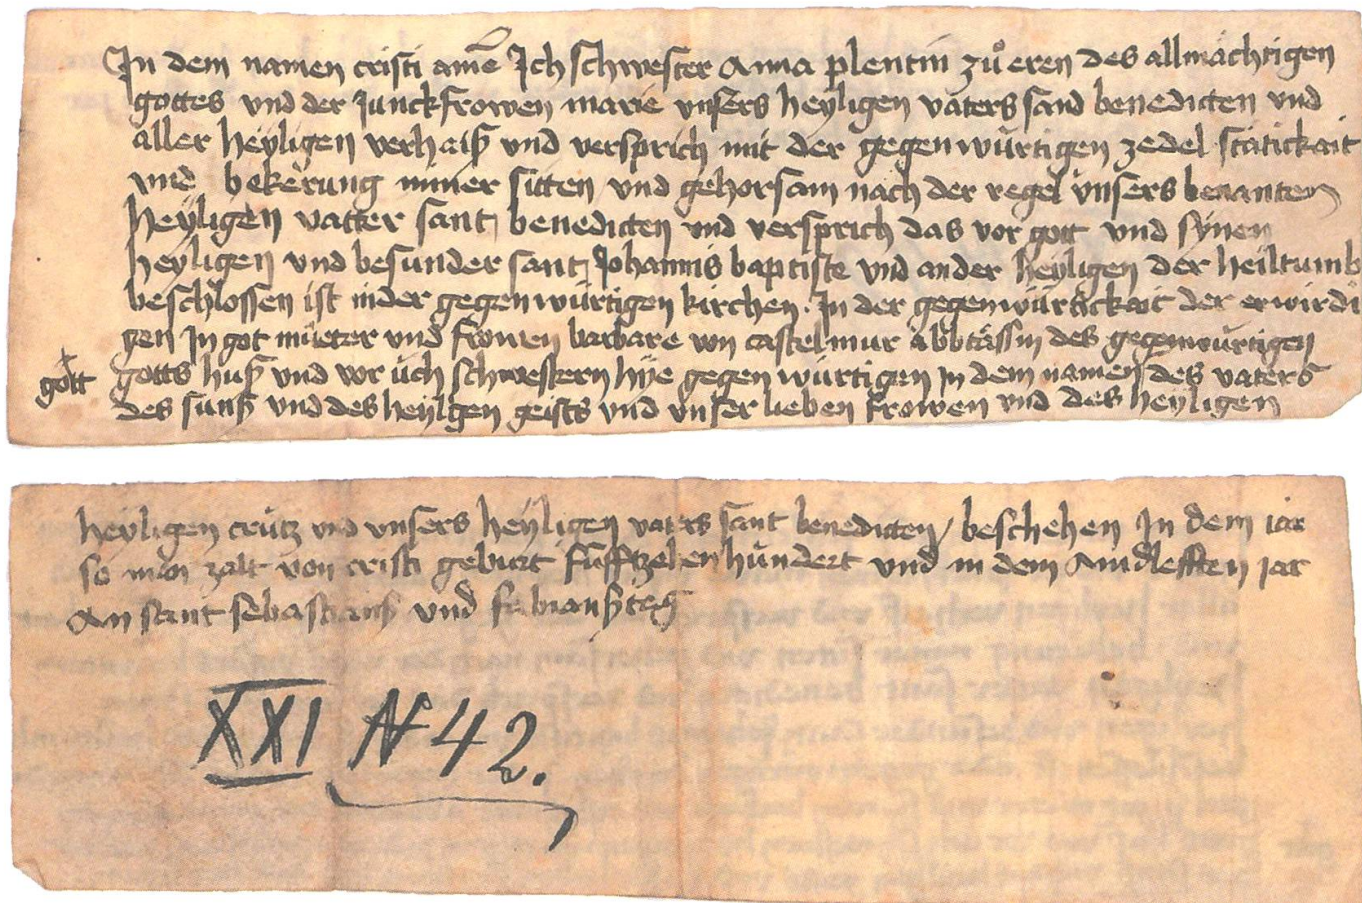 In dem namen cristi amē Ich schwester Anna plentin zů eren des allmächtigen
gottes vnd der Junckfrowen marie vnsers heyligen vaters sand benedicten vnd
aller heyligen verhaiß vnd versprich mit der gegenwürtigen zedel stätickait
vnd bekerung miner sitten vnd gehorsam nach der regel vnsers benanten
heyligen vatter sant benedicten vnd versprich das vor gott vnd synen
heyligen vnd besunder sant Johannis baptiste vnd ander heyligen der heiltumb
beschlossen ist inder gegenwürtigen kirchen. In der gegenwürtickait der erwirdi
gen In got můtter vnd frowen barbare von castelmur äbbtässin des gegenwürtigen
gott
gotts huß vnd vor üch schwestern hye gegenwürtigen In dem namen des vaters
des sunß vnd des heyligen geists vnd vnser lieben frowen vnd des heyligen
heyligen crütz vnd vnsers heyligen vaters sant benedicten / beschehen In dem iar
so man zalt von cristi geburt fünfftzehen hundert vnd in dem Aindlefften jar
An sant sebastianß vnd fabianß tag
XXI N 42.